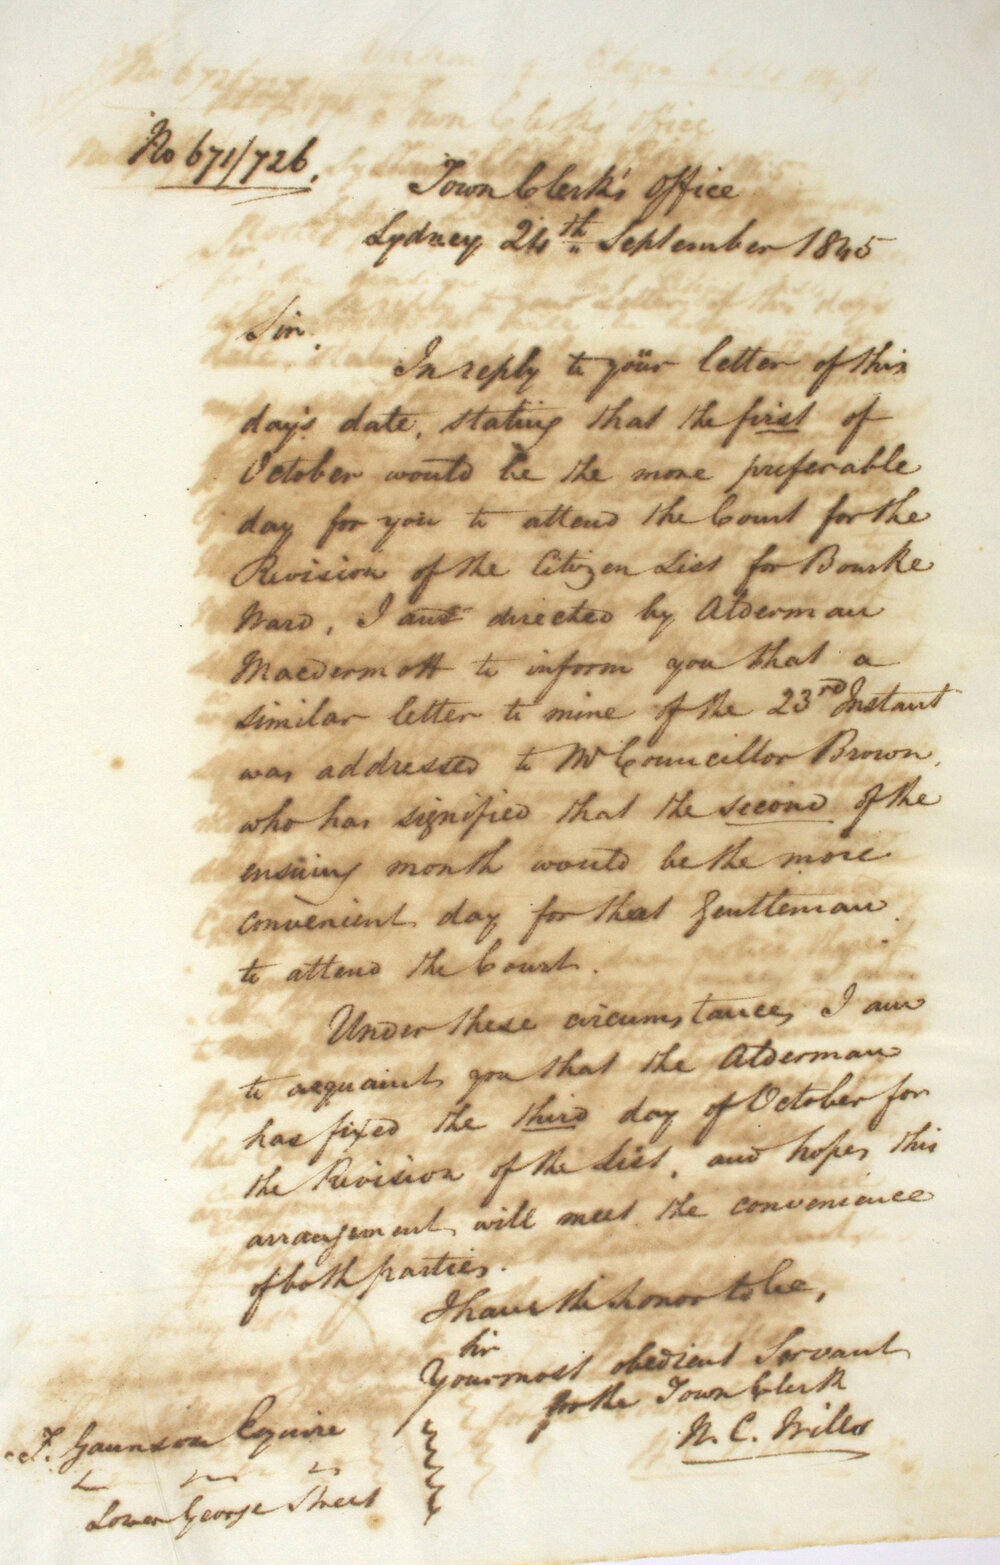 No 671/726.
Town Clerk's Office
Sydney 24th September 1845
Sir,
In reply to your letter of this
day's date, stating that the first of
October would be the more preferable
day for you to attend the Court for the
Revision of the Citizen List for Bourke
Ward, I am directed by Alderman
Macdermott to inform you that a
similar letter to mine of the 23rd Instant
was addressed to Mr Councillor Brown,
who has signified that the second of the
ensuing month would be the more
convenient day for that Gentleman
to attend the Court.
Under these circumstances, I am
to acquaint you that the Alderman
has fixed the third day of October for
the Revision of the List, and hopes this
arrangement will meet the convenience
of both parties.
I have the honor to be,
Sir
Your most obedient Servant
for the Town Clerk
W. C. Wills
F. Gaunson Esquire
Lower George Street